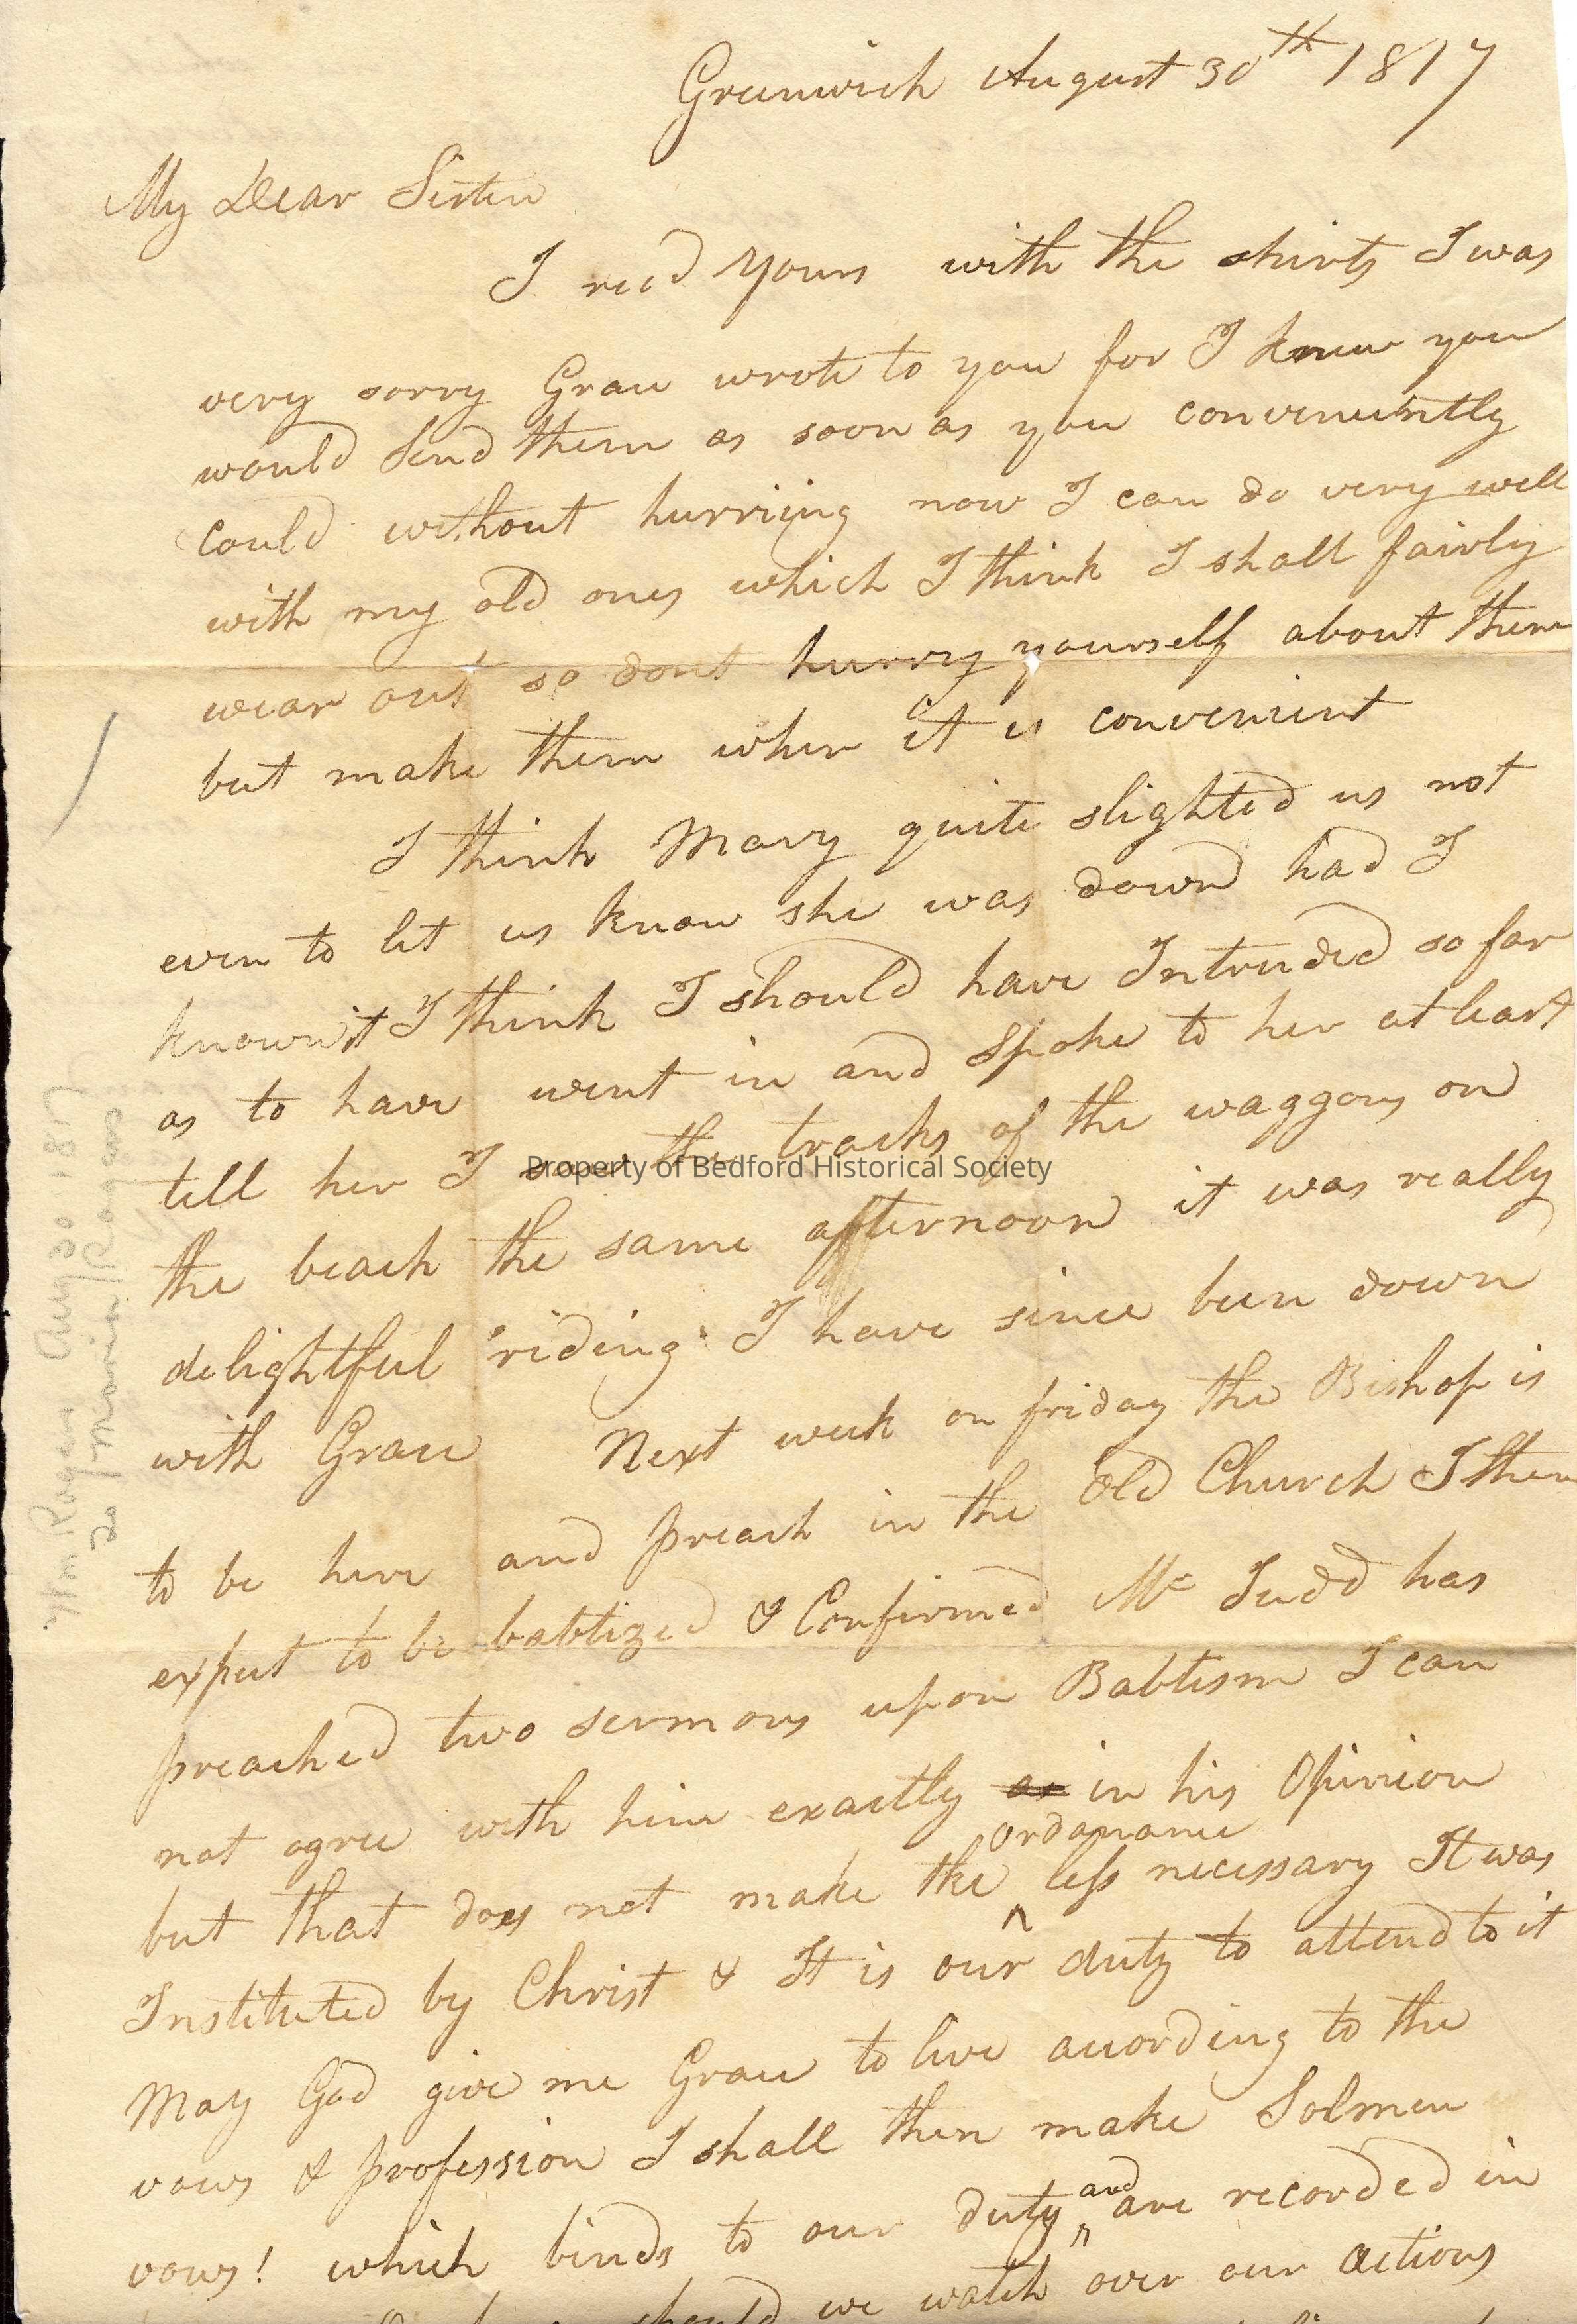 Greenwich August 30th 1817
My Dear Sister
I recd yours with the shirts I was
very sorry Grace wrote to you for I knew you
would send them as soon as you conveniently
could without hurriing now I can do very well
with my old ones which I think I shall fairly
wear out so dont hurry yourself about them
but make them when it is convenient
I think Mary quite slighted us not
even to let us know she was down had I
known it I think I should have Intruded so far
as to have went in and spoke to her at least
till her I saw the tracks of the waggons on
the beach the same afternoon it was really
delightful riding I have since been down
with Grace Next week on friday the Bishop is
to be here and preach in the Old Church I then
expect to be babtized & Confirmed Mr Judd has
preached two sermons upon Babtism I can
not agree with him exactly as in his Opinion
ordanance
but that does not make the ^ less necessary It was
Instituted by Christ & It is our duty to attend to it
May God give me Grace to live acording to the
vows & profession I shall then make Solmen
and
vows! which binds to our duty ^ are recorded in
should we watch over our actions
Wm Rogers Aug 30 1817
to Maria Rogers
Property of Bedford Historical Society